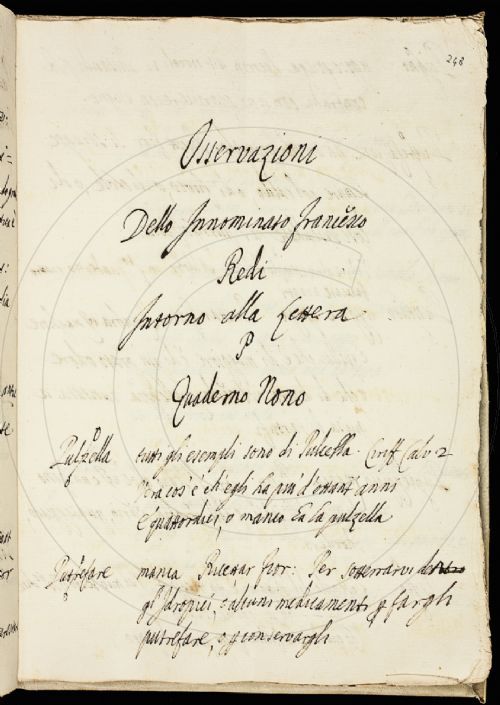 248
Osservazioni
Dello Innominato Francesco
Redi
Intorno alla Lettera
P
Quaderno Nono
Pulzella tutti gli esempli sono di Pulcella. Ciriff. Calv. 2
è quattordici, o manco ha la pulzella
Putrefare manca Ricettar fior: Per sotterrarvi
gl'Idropici, o alcuni medicamenti p fargli
putrefare, o p conservargli